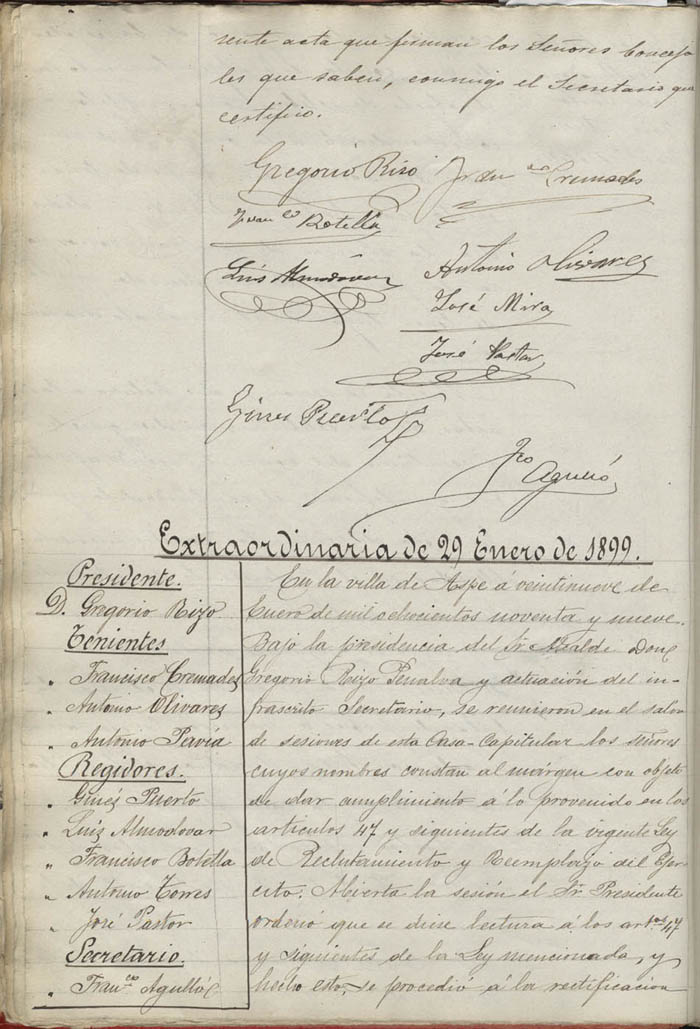 sente acta que firman los Señores Conceja
les que saben, conmigo el Secretario que
certifico.
Gregorio Rizo
Fran co Cremades
Fran co Botella
Luis Almodovar
Antonio Olivares
José Mira
José Pastor
Gines Puerto
Fco Agulló
Extraordinaria de 29 Enero de 1899.
Presidente.
D. Gregorio Rizo
Tenientes
" Francisco Cremades
" Antonio Olivares
" Antonio Pavía
Regidores.
" Ginés Puerto
" Luiz Almodovar
" Francisco Botella
" Antonio Torres
" José Pastor
Secretario.
" Fran.co Agulló
En la villa de Aspe á veintinueve de
Enero de mil ochocientos noventa y nueve.
Bajo la presidencia del Sr. Alcalde Don
Gregorio Rizo Penalva y actuación del in-
frascrito Secretario, se reunieron en el salon
de sesiones de esta Casa-Capitular los señores
cuyos nombres constan al márgen con objeto
de dar cumplimiento á lo prevenido en los
artículos 47 y siguientes de la vigente Ley
de Reclutamiento y Reemplazo del Ejer-
cito. Abierta la sesión el Sr. Presidente
ordenó que se diese lectura á los art.os 47
y siguientes de la Ley mencionada, y
hecho esto, se procedió á la rectificacion